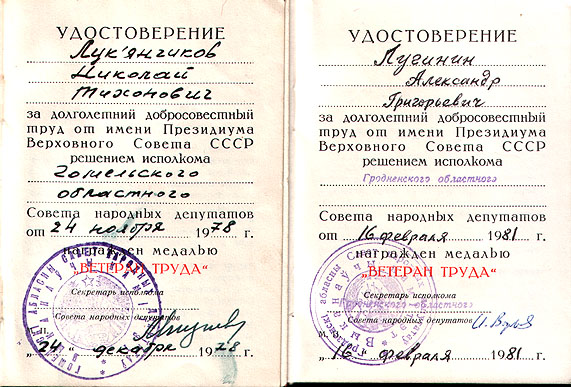 УДОСТОВЕРЕНИЕ
Лук'янчиков
Николай
Тихонович
за долголетний добросовестный
труд от имени Президиума
Верховного Совета СССР
решением исполкома
Гомельского
областного
Совета народных депутатов
от 24 ноября 1978 г.
награжден медалью
„ВЕТЕРАН ТРУДА“
Секретарь исполкома
Совета народных депутатов
„24“ декабря 1978 г.
УДОСТОВЕРЕНИЕ
Лугинин
Александр
Григорьевич
за долголетний добросовестный
труд от имени Президиума
Верховного Совета СССР
решением исполкома
Гродненского областного
Совета народных депутатов
от 16 февраля 1981 г.
награжден медалью
„ВЕТЕРАН ТРУДА“
Секретарь исполкома
Гродненского областного
Совета народных депутатов
„16“ февраля 1981 г.